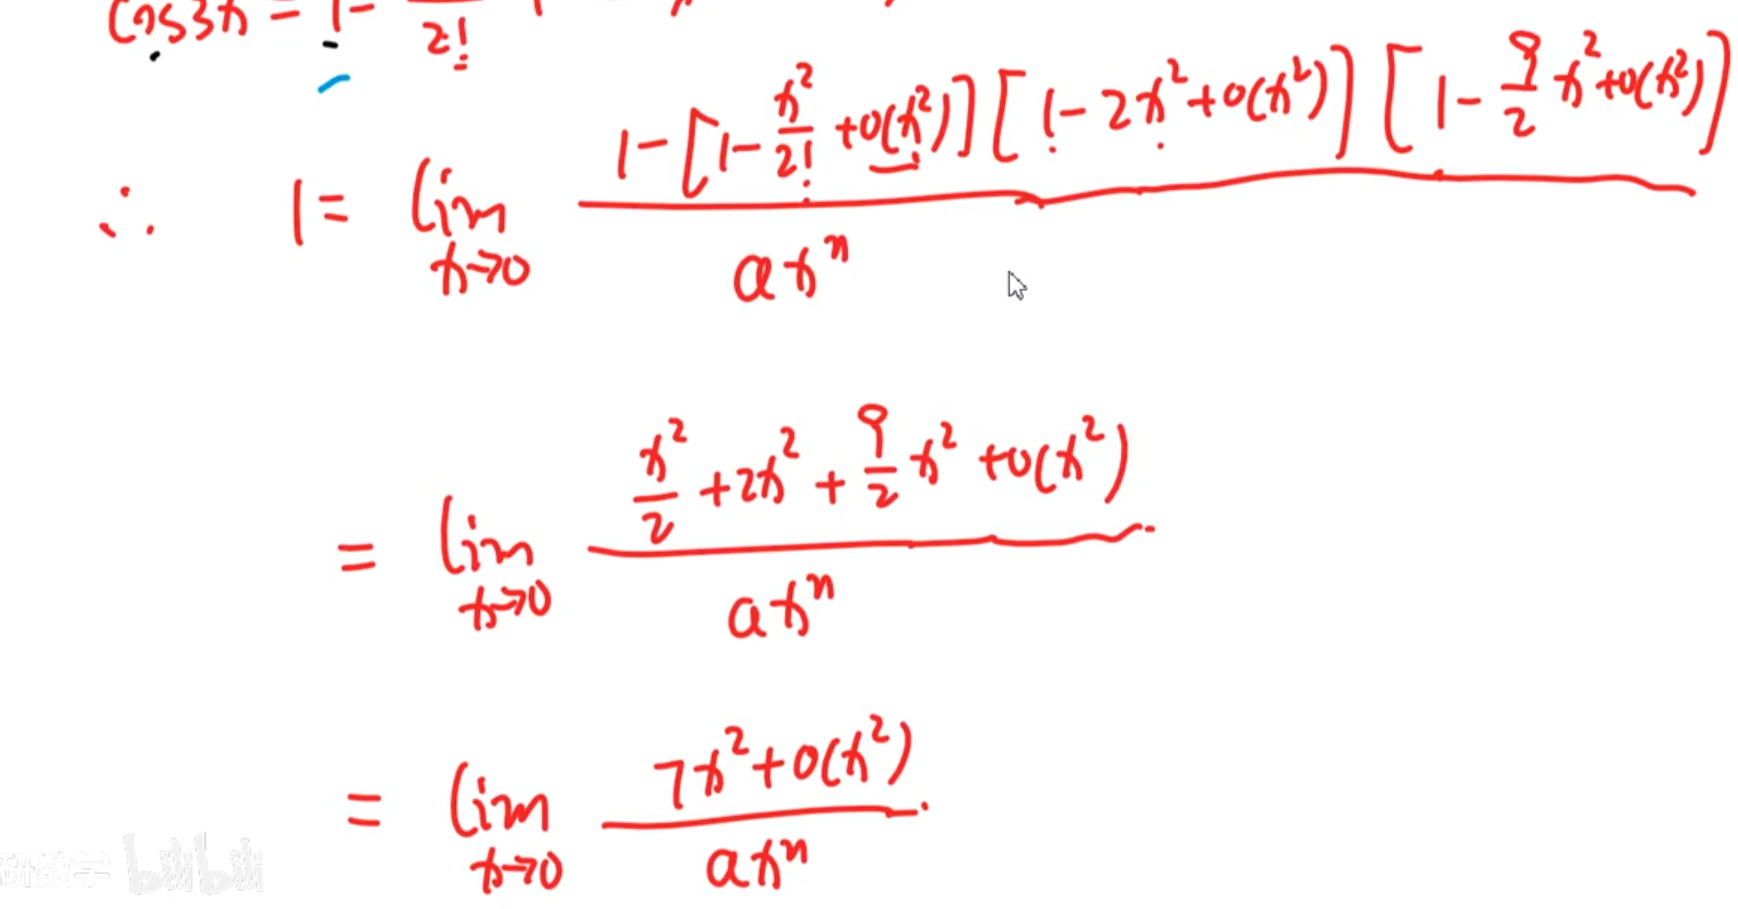 cos3x = 1 - 2!
∴ 1 = lim x→0 1-[1-x²/2!+o(x²)][1-2x²+o(x²)][1-9/2 x²+o(x²)] / ax^n
= lim x→0 x²/2 + 2x² + 9/2 x² + o(x²) / ax^n
= lim x→0 7x²+o(x²) / ax^n
研数学 bilibili